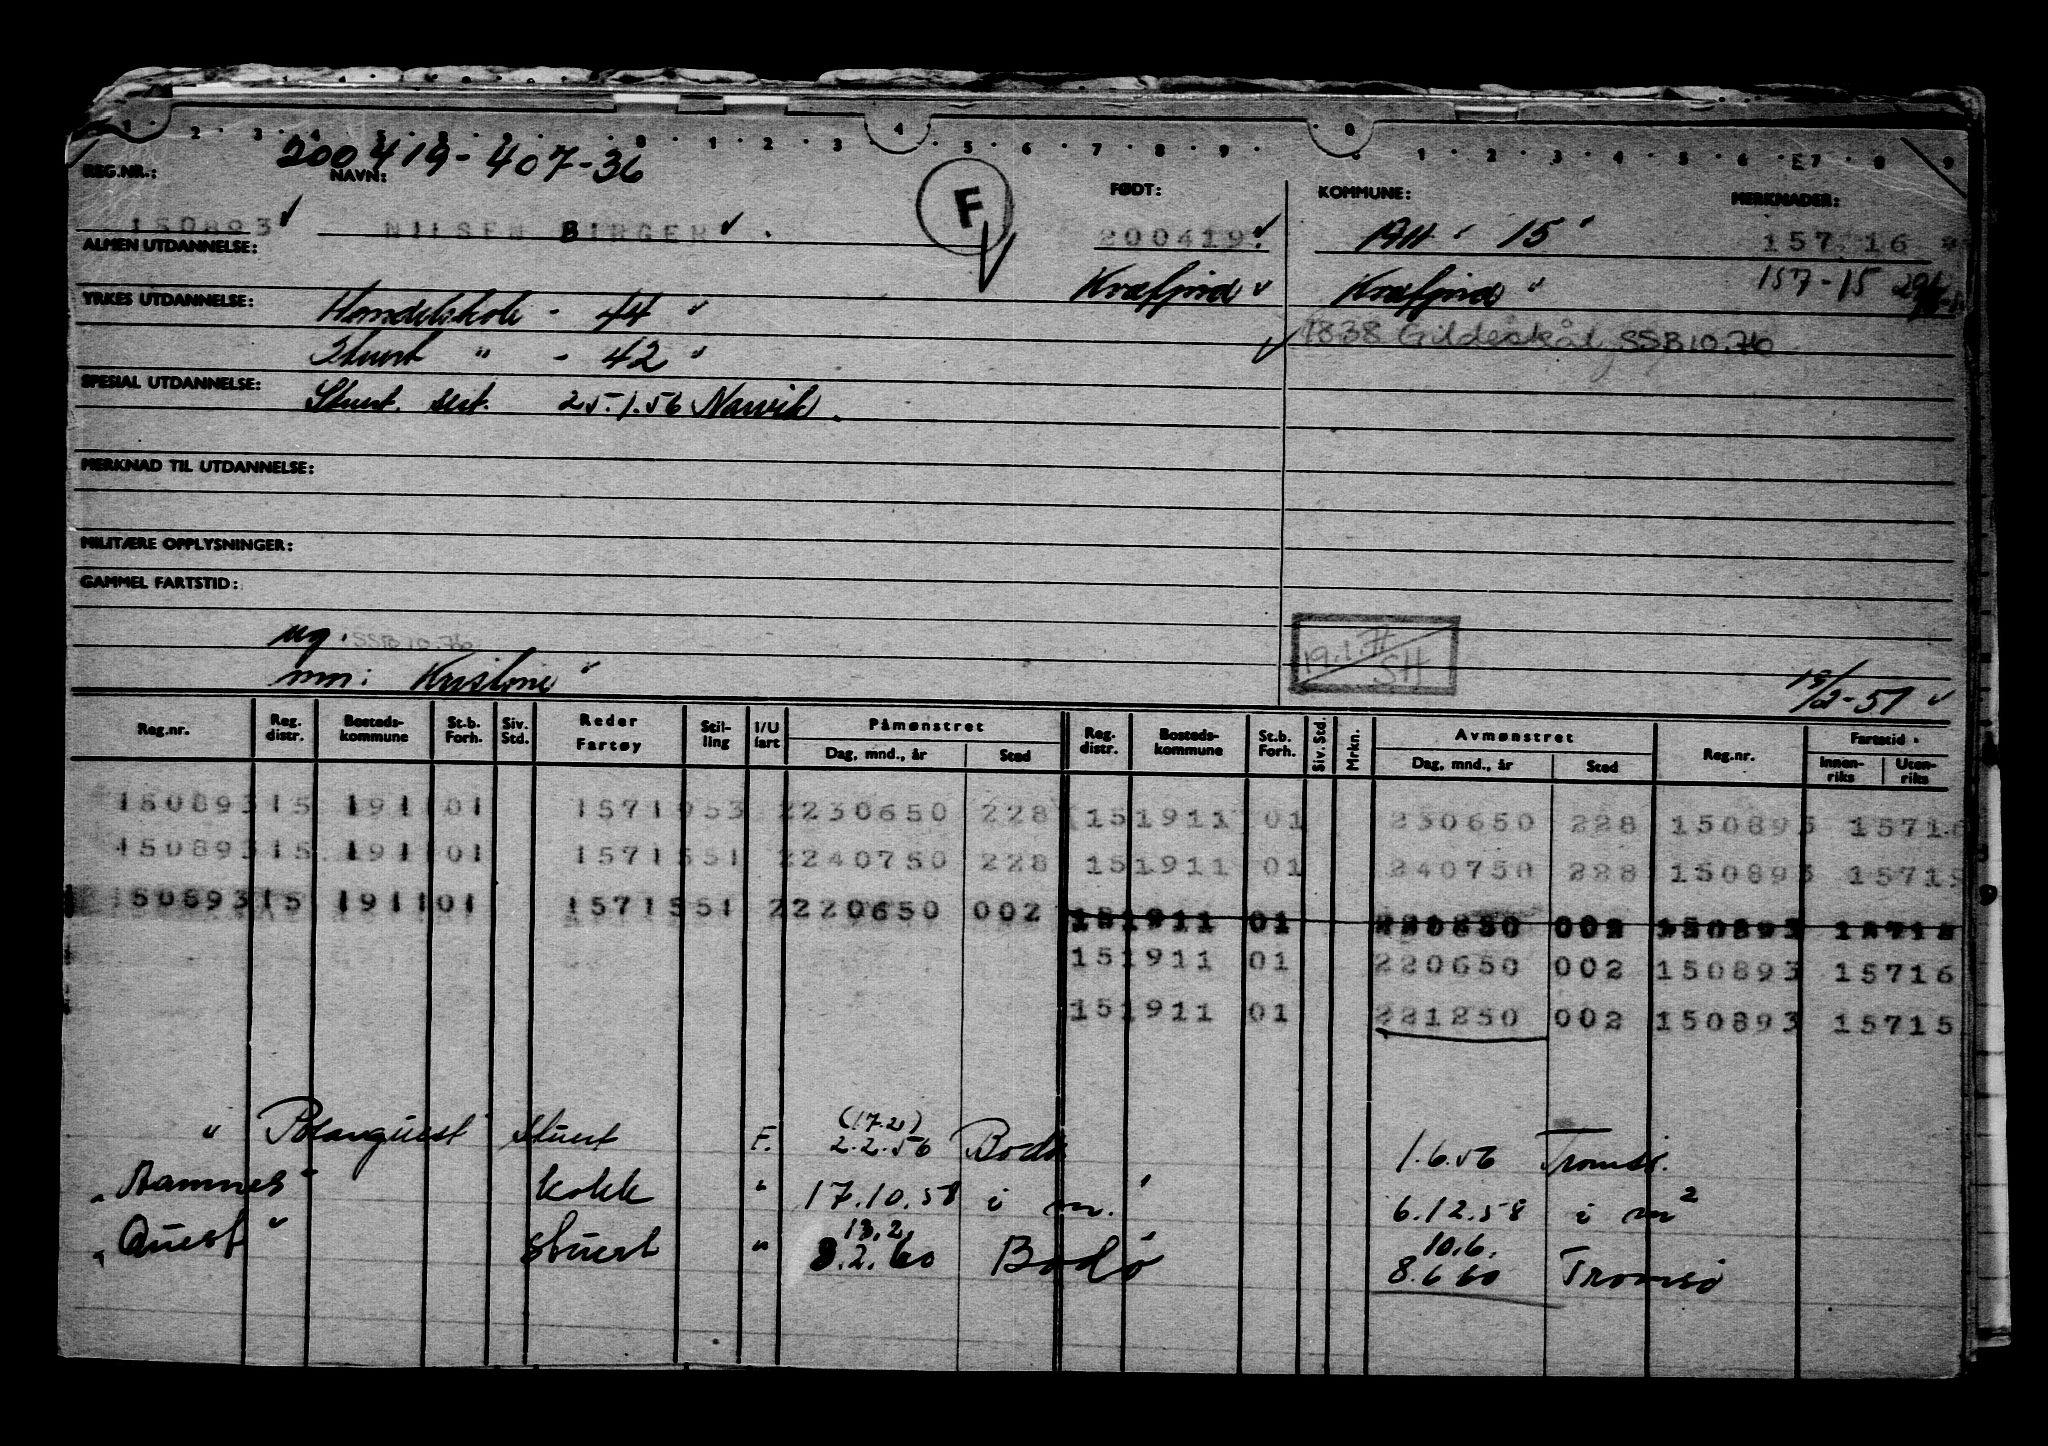 1 2 3 4 5 8 9 0 1 2 3 4 5 6 7 8 9 0 1 2 3 4 5 6 E7 8 9
200419-407-36
REG.NR.: NAVN: F FØDT: KOMMUNE: MERKNADER:
150893 NILSEN BIRGER 200419 1911 15 157 16
ALMEN UTDANNELSE:
Kvæfjord Kvæfjord 157-15
YRKES UTDANNELSE: Handelskole - 44 "
1838 Gildeskål, SSB 10.76
Stuert " - 42 "
SPESIAL UTDANNELSE: Stuert. sert. 25.1.56 Narvik.
MERKNAD TIL UTDANNELSE:
MILITÆRE OPPLYSNINGER:
GAMMEL FARTSTID:
ug. SSB 10.76
19.1.71 SH
mn: Kristine
19/2-51
Reg.nr. Reg. distr. Bosteds-kommune St.b. Forh. Siv. Std. Reder Fartøy Stil-ling I/U fart Påmønstret Reg. distr. Bosteds-kommune St.b. Forh. Siv. Std. Mrkn. Avmønstret Reg.nr. Fartstid
Dag, mnd., år Sted Dag, mnd., år Sted Innen-riks Uten-riks
150893 15 1911 01 1571953 2 230650 228 15 1911 01 230650 228 150893 15716
150893 15 1911 01 1571551 2 240750 228 15 1911 01 240750 228 150893 15715
150893 15 1911 01 1571551 2 220650 002 15 1911 01 220650 002 150893 15715
15 1911 01 220650 002 150893 15716
15 1911 01 221250 002 150893 15715
(17.2)
" Polarquest Stuert F. 2.2.56 Bodø 1.6.56 Tromsø.
" Hamnes " Kokk " 17.10.58 i m. 6.12.58 i m
13.2. 10.6.
" Quest " Stuert " 8.2.60 Bodø 8.6 60 Tromsø